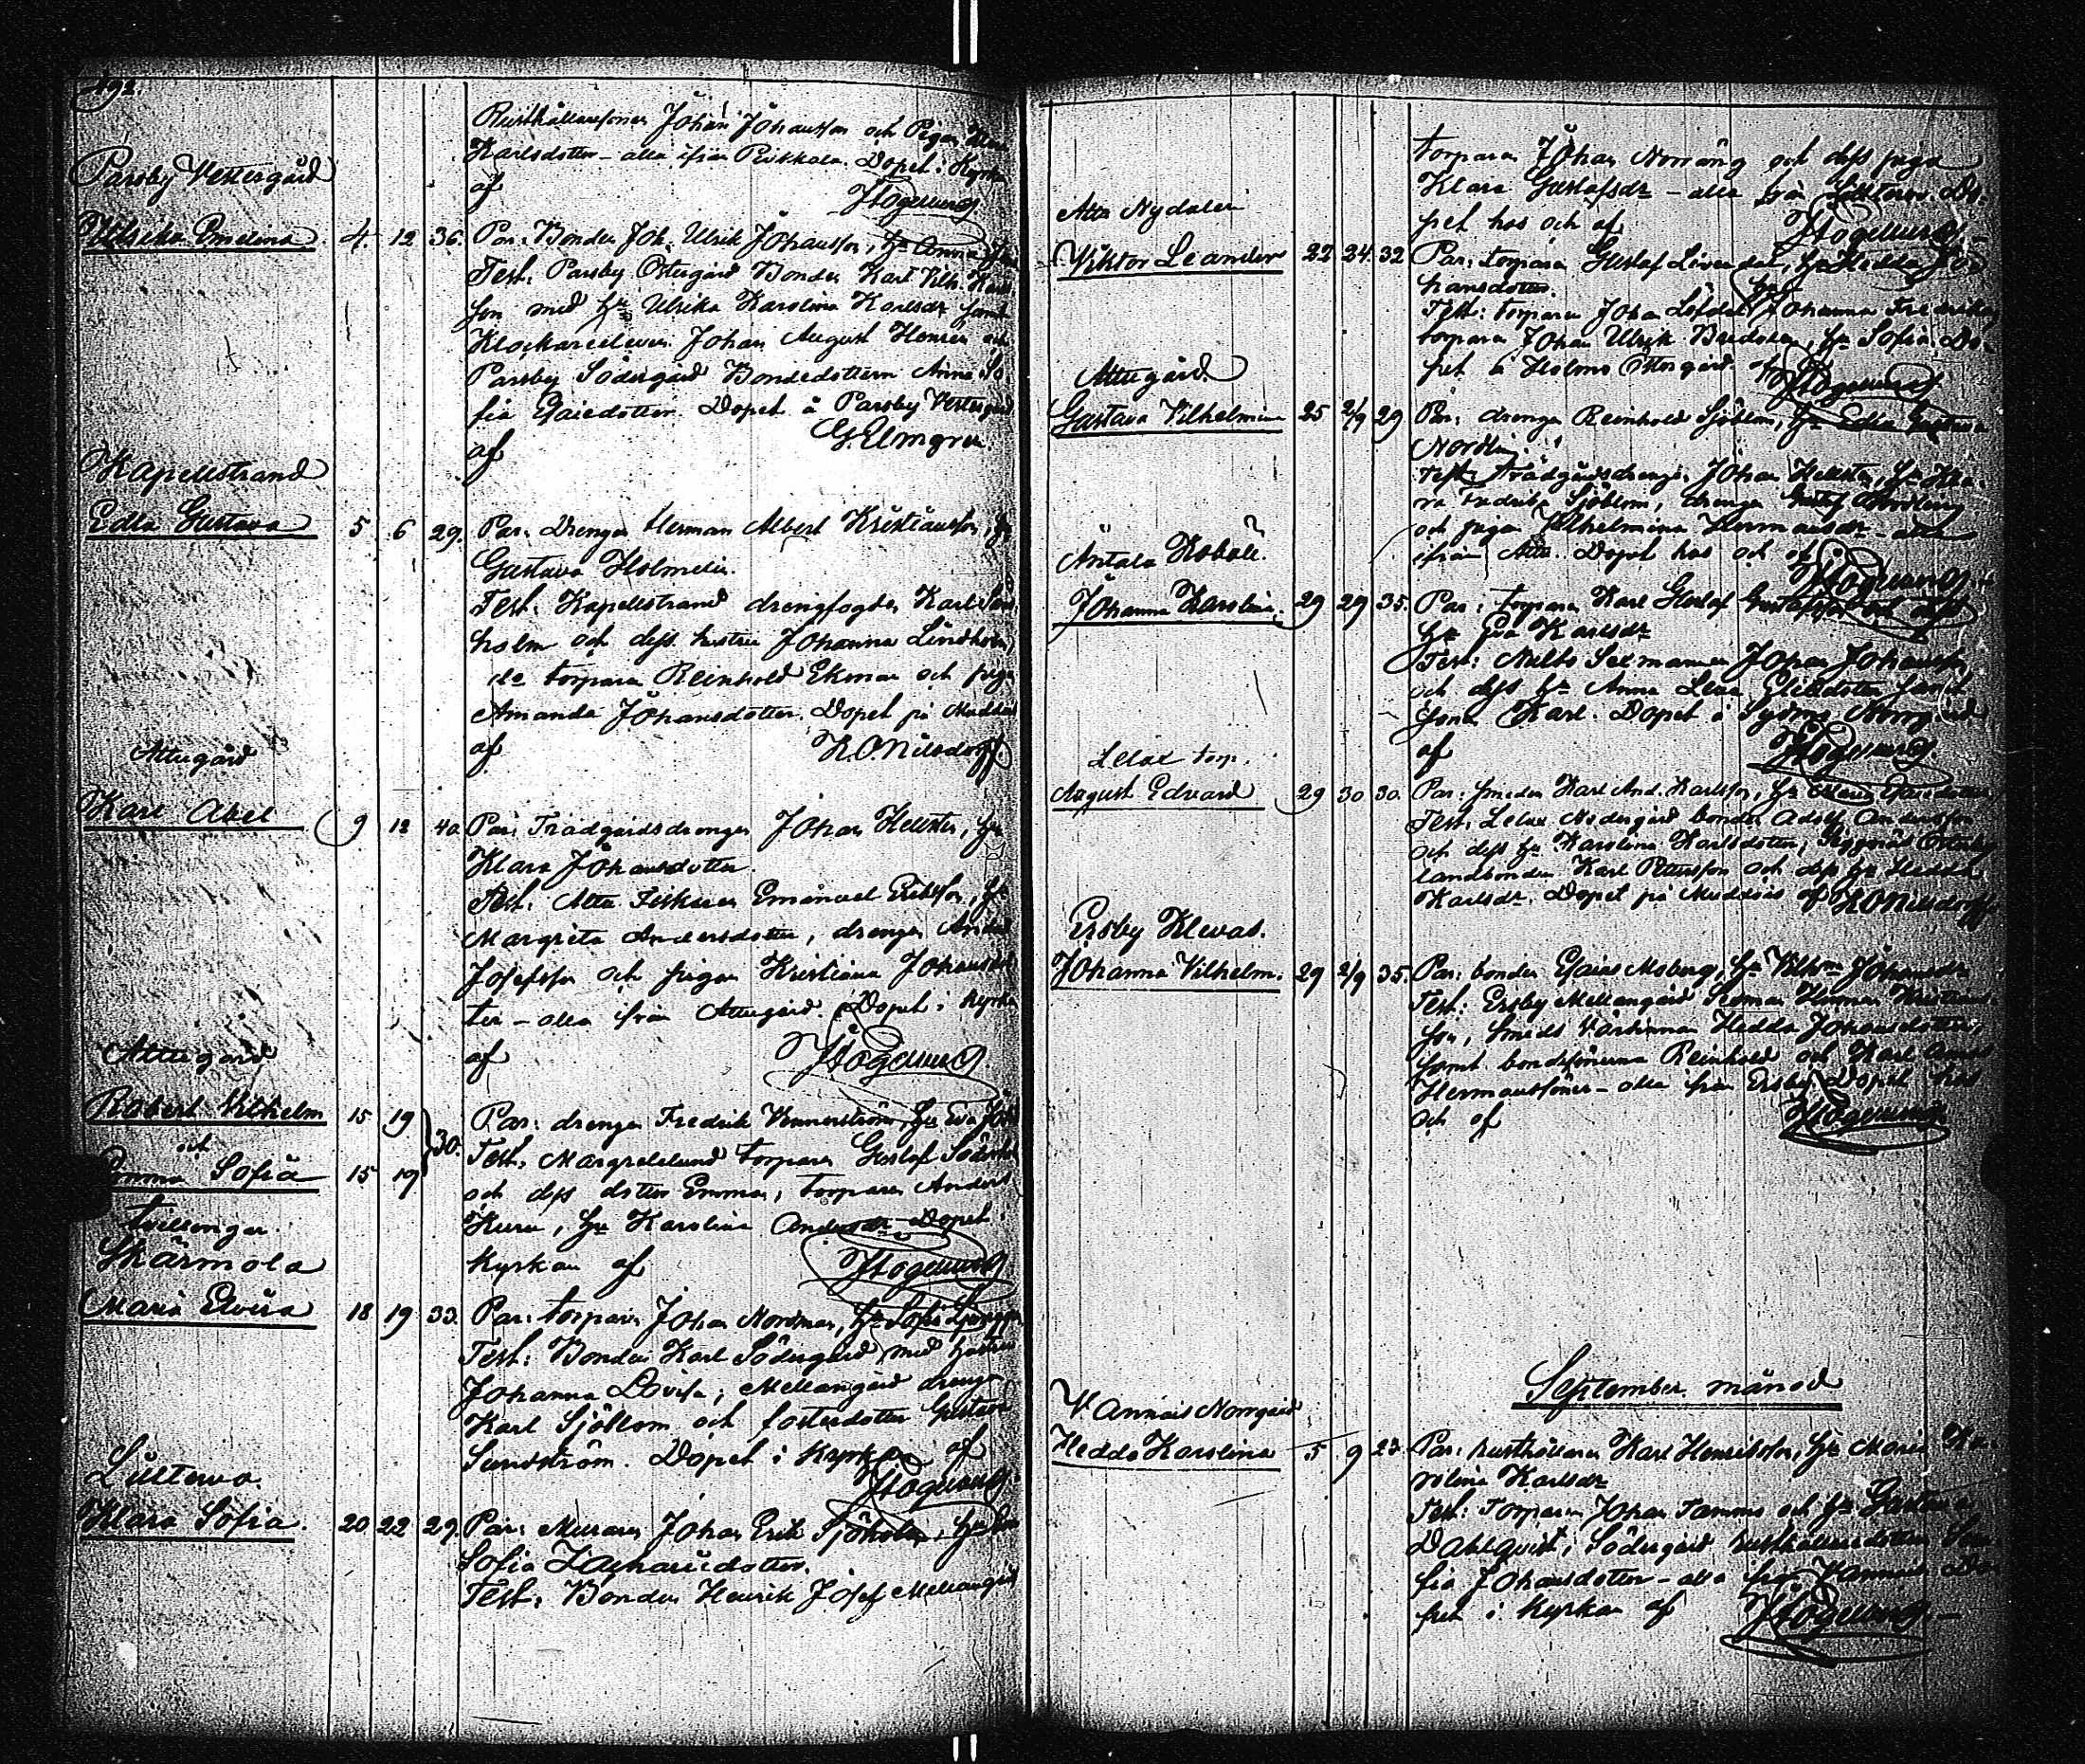 192.
Rusthållaresonen Johan Johansson och Pigan
Karlsdotter – alla ifrån Pirkkala. Dopet i Kyrkan
af Högelund
Parsby Vestergård
Ulrika Emelina. 4. 12 36. Par: Bonden Joh. Ulrik Johansson, hu Anna
Test: Parsby Östergård Bonden Karl Vilh. Karls
son med hu Ulrika Karolina Karlsdr samt
Klockareeleven Johan August Henrén och
Parsby Södergård Bondedottern Anna So
fia Esaiedotter. Dopet å Parsby Vestergård
af G. Elmgren.
Kapellstrand
Edla Gustava 5 6 29. Par: Drengen Herman Albert Kristiansson, hu
Gustava Holmelin.
Test: Kapellstrand drengfogden Karl
holm och dess hustru Johanna Lindholm,
do torparen Reinhold Ekman och pigan
Amanda Johansdotter. Dopet på Muddais
af K.O. Nilsdorff
Attugård
Karl Abel 9 12 40. Par: Trädgårdsdrengen Johan Hellsten, hu
Klara Johansdotter.
Test: Attu Fiskaren Emanuel Eriksson, hu
Margreta Andersdotter, drengen Anders
Josefsson och pigan Kristina Johansdot
ter – alla från Attugård. Dopet i Kyrkan
af Högelund.
Attugård
Robert Vilhelm 15 19
och
Emma Sofia 15 19 30.
tvillingar
Par: drengen Fredrik Vennerström, hu Eva
Test: Margretelund torparen Gustaf
och dess dotter Emma, torparen Anders
Kuru, hu Karolina Andersdr Dopet
Kyrkan af Högelund
Skärmola
Maria Elvira 18 19 33. Par: torparen Johan Nordman, hu Sofia
Test: Bonden Karl Södergård med hustru
Johanna Lovisa, Mellangård drengen
Karl Sjöblom och fosterdotter Gustava
Sundström. Dopet i Kyrkan af
Högelund
Lilltervo.
Klara Sofia. 20 22 29. Par: Muraren Johan Erik Sjöholm, hu
Sofia Zachariedotter.
Test: Bonden Henrik Josef Mellangård
torparen Johan Norräng och dess piga
Klara Gustafsdr – alla från Lilltervo. Do-
pet hos och af Högelund.
Attu Nydalen
Viktor Leander 22 24. 32 Par: torparen Gustaf Lövendal, hu Hedda Jo
hansdotter.
Test: torparen Johan Löfdal, hu Johanna Fredrika,
torparen Johan Ulrik Bredalen, hu Sofia. Do-
pet å Holms Östergård af Högelund.
Attugård.
Gustava Vilhelmina 25 2/9 29 Par: drengen Reinhold Sjöblom, hu Edla Gustava
Nordling.
Test: Trädgårdsdrengen Johan Hellsten, hu Kla-
ra Fredrika Sjöblom, drengen Gustaf Nordling
och pigan Vilhelmina Hermansdr – alla
ifrån Attu. Dopet hos och af
Högelund.
Äntala Kobole.
Johanna Karolina. 29 29 35. Par: torparen Karl Gustaf Gustafsson och dess
hu Eva Karlsdr
Test: Nulto Sexmannen Johan Johansson
och dess hu Anna Lena Eliedotter samt
sonen Karl. Dopet å Sydmo Norrgård
af Högelund.
Lelax torp.
August Edvard 29 30 30. Par: smeden Karl And. Karlsson, hu Maria Esaiedotter,
Test: Lelax Nedergård bonden Adolf Andersson
och dess hu Karolina Karlsdotter, Seggnäs Österby
landbonden Karl Pettersson och dess hu Hedda
Karlsdr. Dopet på Muddais af K.O. Nilsdorff
Ersby Klevas.
Johanna Vilhelm. 29 2/9 35. Par: bonden Esaias Moberg, hu Vilhma Johansdr
Test: Ersby Mellangård Sexman Herman Kristians-
son, Smeds Värdinnan Hedda Johansdotter,
samt bondesönerna Reinhold och Karl
Hermanssöner – alla från Ersby. Dopet hos
och af Högelund.
September månad
V. Annais Norrgård
Hedda Karolina 5 9 23. Par: rusthållaren Karl Henriksson, hu Maria Ka-
rolina Karlsdr
Test: Torparen Johan Tamms och hu Gustava
Dahlqvist, Södergård rusthållaredottern So
fia Johansdotter – alla från V. Annais. Do
pet i Kyrkan af Högelund.